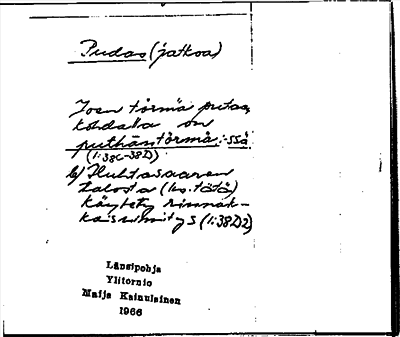 Pudas (jatkoa)
Joen törmä putaa
kohdalla on
puthantörmä :ssä
(1:38C-38D)
b) Huhtasaaren
talosta (ks. tätä)
käytetty rinnak-
kaisnimitys (1:38D2)
Länsipohja
Ylitornio
Maija Kainulainen
1966